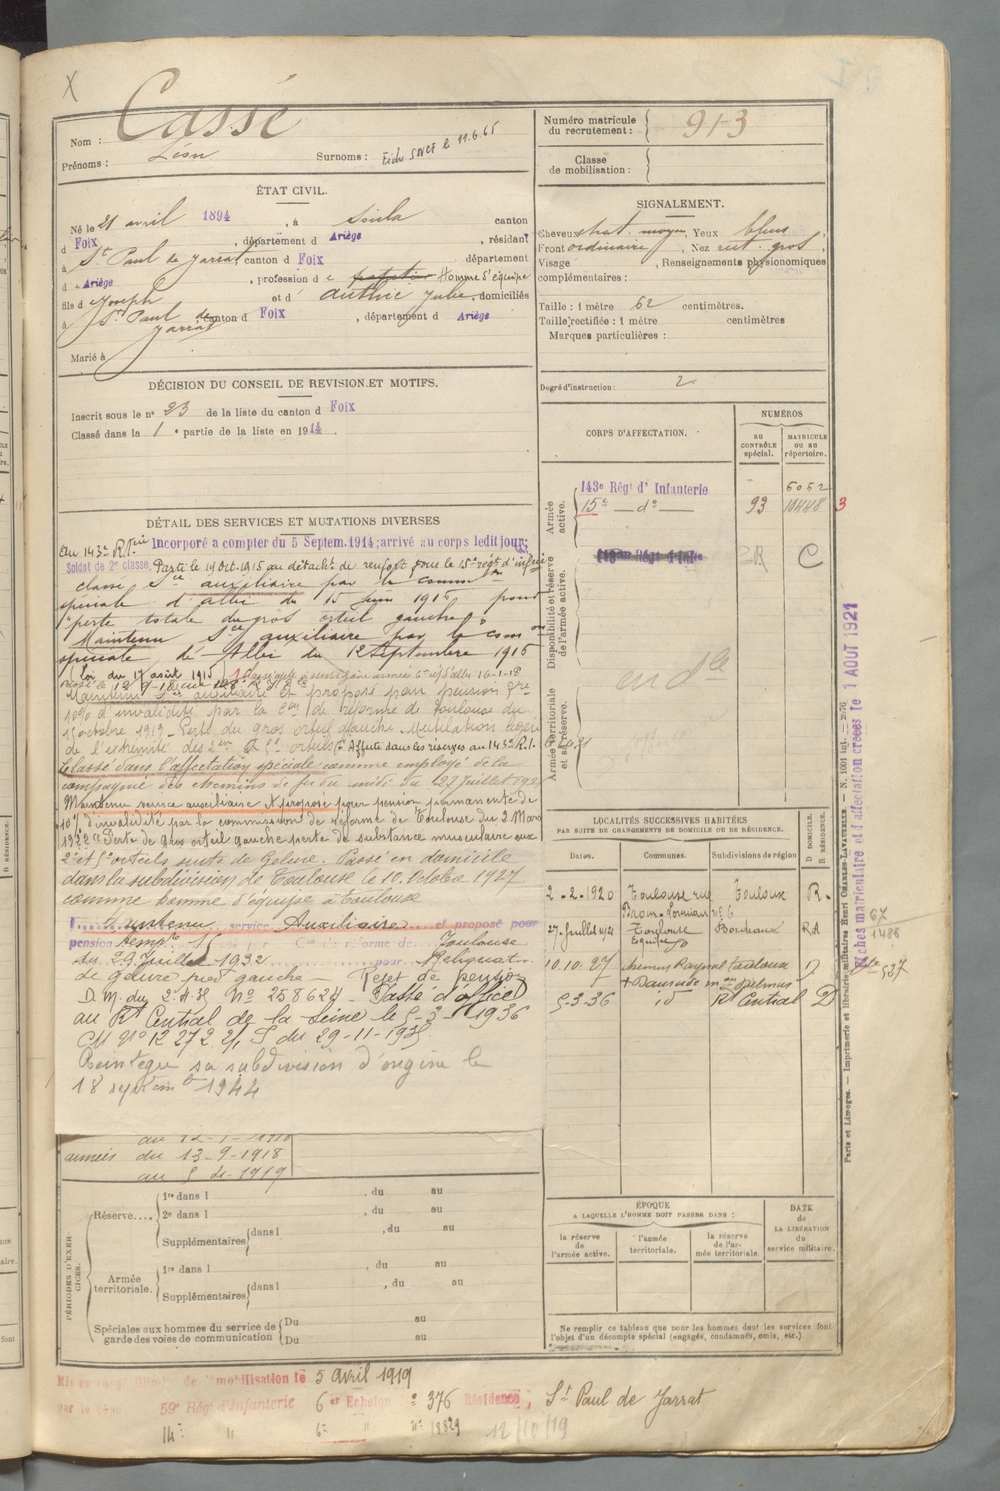 X
Nom : Cassé
Prénoms : Léon
Surnoms : Fiche SNCF le 11.6.65
Numéro matricule du recrutement : 913
Classe de mobilisation :
ÉTAT CIVIL.
Né le 21 avril 1894, à Soula canton
d Foix, département d Ariège, résidant
à St Paul de Jarrat canton d Foix département
d e Ariège, profession d e Homme d'équipe
fils d e Joseph et d' Authié Julie domiciliés
à St Paul de Jarrat, canton d Foix, département d Ariège
Marié à
SIGNALEMENT.
Cheveux chat. moyen, Yeux bleus,
Front ordinaire, Nez rect. gros,
Visage , Renseignements physionomiques
complémentaires :
Taille : 1 mètre 62 centimètres.
Taille rectifiée : 1 mètre centimètres
Marques particulières :
Degré d'instruction : 2
DÉCISION DU CONSEIL DE REVISION ET MOTIFS.
Inscrit sous le n° 23 de la liste du canton d Foix
Classé dans la 1e partie de la liste en 1914.
CORPS D'AFFECTATION.
NUMÉROS
AU CONTRÔLE spécial.
MATRICULE ou au répertoire.
Armée active.
143e Régt d'Infanterie 6062
15e — do — 93 10448 3
Disponibilité et réserve de l'armée active.
C
Armée territoriale et sa réserve.
DÉTAIL DES SERVICES ET MUTATIONS DIVERSES
Au 143e R.I. Incorporé a compter du 5 Septem. 1914; arrivé au corps ledit jour;
Soldat de 2e classe. Parti le 14 Oct. 1915 au détacht de renfort pour le 15e régt d'infrie
classé Sce auxiliaire par la common
spéciale d'Albi du 15 juin 1916 pour
"perte totale du gros orteil gauche"
Maintenu Sce auxiliaire par la common
spéciale d'Albi du 12 Septembre 1916
(loi du 17 août 1915)
Maintenu Sce auxiliaire et proposé pour pension
10% d'invalidité par la Con de réforme de Toulouse du
15 octobre 1919 - Perte du gros orteil gauche - Mutilation légère
de l'extrémité des 2e et 5e orteils Affecté dans les réserves au 143e R.I.
Classé dans l'affectation spéciale comme employé de la
compagnie des chemins de fer du midi du 27 Juillet 1921
Maintenu service auxiliaire et proposé pour pension permanente de
10% d'invalidité par la commission de réforme de Toulouse du 2 Mars
1922 "Perte de gros orteil gauche perte de substance musculaire aux
2e et 5e orteils suite de Gelure. Passé en domicile
dans la subdivision de Toulouse le 10. Octobre 1927
comme homme d'équipe à Toulouse
Maintenu service Auxiliaire et proposé pour
pension temp. 15 Con de réforme de Toulouse
du 29 Juillet 1932 pour Reliquat
de gelure pied gauche - Rejet de pension
D. M. du 2.4.35 No 258624 - Passé d'office
au Rt Central de la Seine le 5-3-1936
CM No 12272 2/1 S du 29-11-1935
Réintègre sa subdivision d'origine le
18 septembre 1944
années du 13-9-1918
au 5 4-1919
LOCALITÉS SUCCESSIVES HABITÉES
PAR SUITE DE CHANGEMENTS DE DOMICILE OU DE RÉSIDENCE.
Dates. Communes. Subdivisions de région
D DOMICILE. R RÉSIDENCE.
2-2-1920 Toulouse rue Toulouse R.
27-Juillet 1921 Toulouse Bordeaux R
10.10.27 chemin Raynal Toulouse D
5-3-36 id Rt Central D
ÉPOQUE
A LAQUELLE L'HOMME DOIT PASSER DANS :
la réserve de l'armée active.
l'armée territoriale.
la réserve de l'armée territoriale
DATE de LA LIBÉRATION du service militaire.
Ne remplir ce tableau que pour les hommes dont les services font
l'objet d'un décompte spécial (engagés, condamnés, omis, etc.).
PÉRIODES D'EXERCICES.
Réserve.... 1re dans l , du au
2e dans l , du au
Supplémentaires dans l , du au
Armée territoriale. 1re dans l , du au
Supplémentaires dans l , du au
Spéciales aux hommes du service de garde des voies de communication Du au
Du au
Mis en congé illimité de démobilisation le 5 avril 1919
par le dépôt 59e Régt d'Infanterie 6e Echelon n° 376 Résidence, St Paul de Jarrat
14e " 6e " n° 18829 12/10/19
Fiches matriculaire et d'affectation créées le 1 AOUT 1921
Paris et Limoges. — Imprimerie et librairie militaires Henri CHARLES-LAVAUZELLE.
67
1488
527